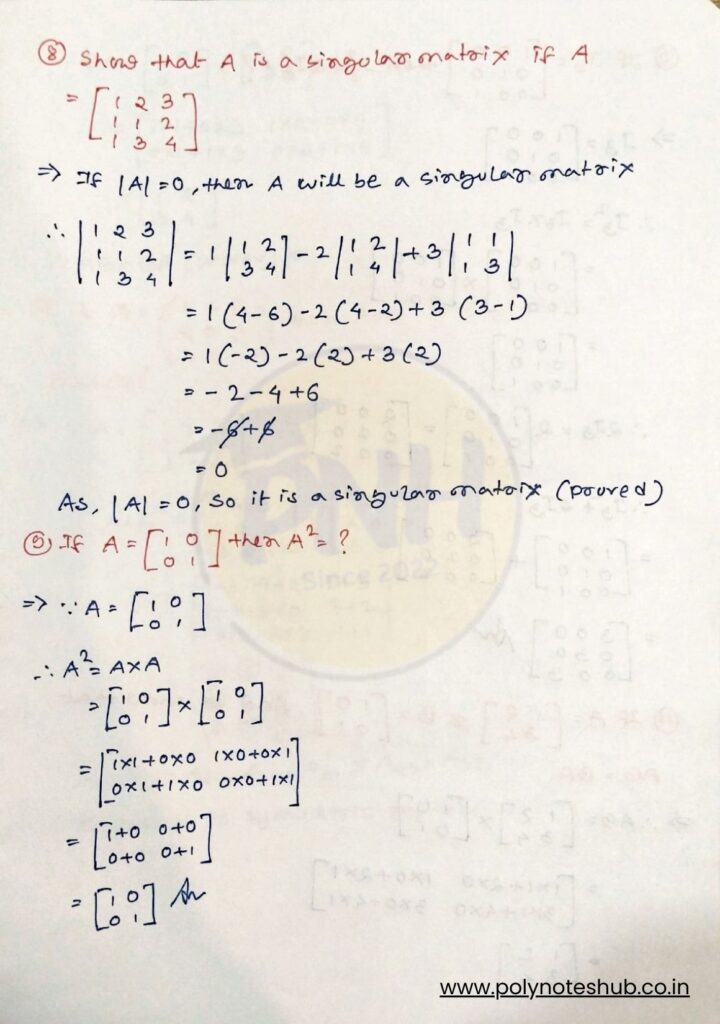 ⑧ Show that A is a singular matrix if A
= [1 2 3
1 1 2
1 3 4]
=> If |A|=0, then A will be a singular matrix
∴ |1 2 3
1 1 2
1 3 4| = 1 |1 2
3 4| - 2 |1 2
1 4| + 3 |1 1
1 3|
= 1(4-6) - 2(4-2) + 3(3-1)
= 1(-2) - 2(2) + 3(2)
= - 2 - 4 + 6
= -6 + 6
= 0
As, |A|=0, so it is a singular matrix (proved)
⑨ If A = [1 0
0 1] then A²= ?
=> ∵ A = [1 0
0 1]
∴ A² = A×A
= [1 0
0 1] × [1 0
0 1]
= [1×1+0×0 1×0+0×1
0×1+1×0 0×0+1×1]
= [1+0 0+0
0+0 0+1]
= [1 0
0 1] An
PNH
Since 2022
www.polynoteshub.co.in